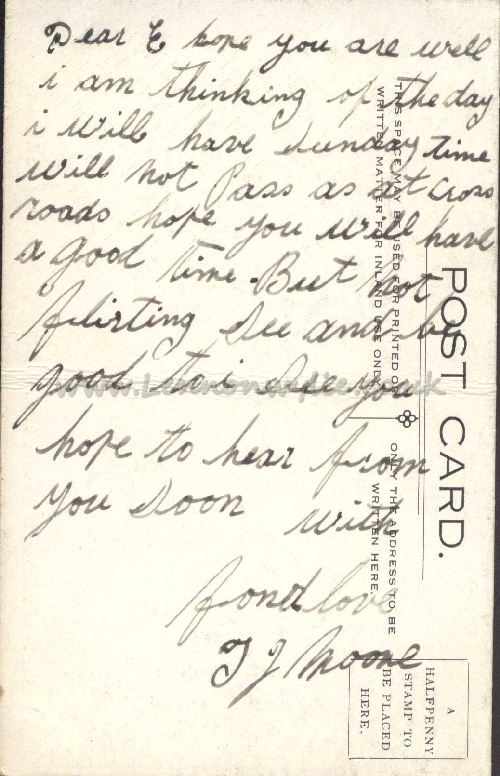 Dear E hope you are well
i am thinking of the day
i will have sunday time
will not Pass as at Cross
roads hope you will have
a good time But not
flirting See and be
good to i see you
hope to hear from
you Soon with
fond love
T J Moore
POST CARD.
THIS SPACE MAY BE USED FOR PRINTED OR
WRITTEN MATTER FOR INLAND USE ONLY.
ONLY THE ADDRESS TO BE
WRITTEN HERE.
A
HALFPENNY
STAMP TO
BE PLACED
HERE.